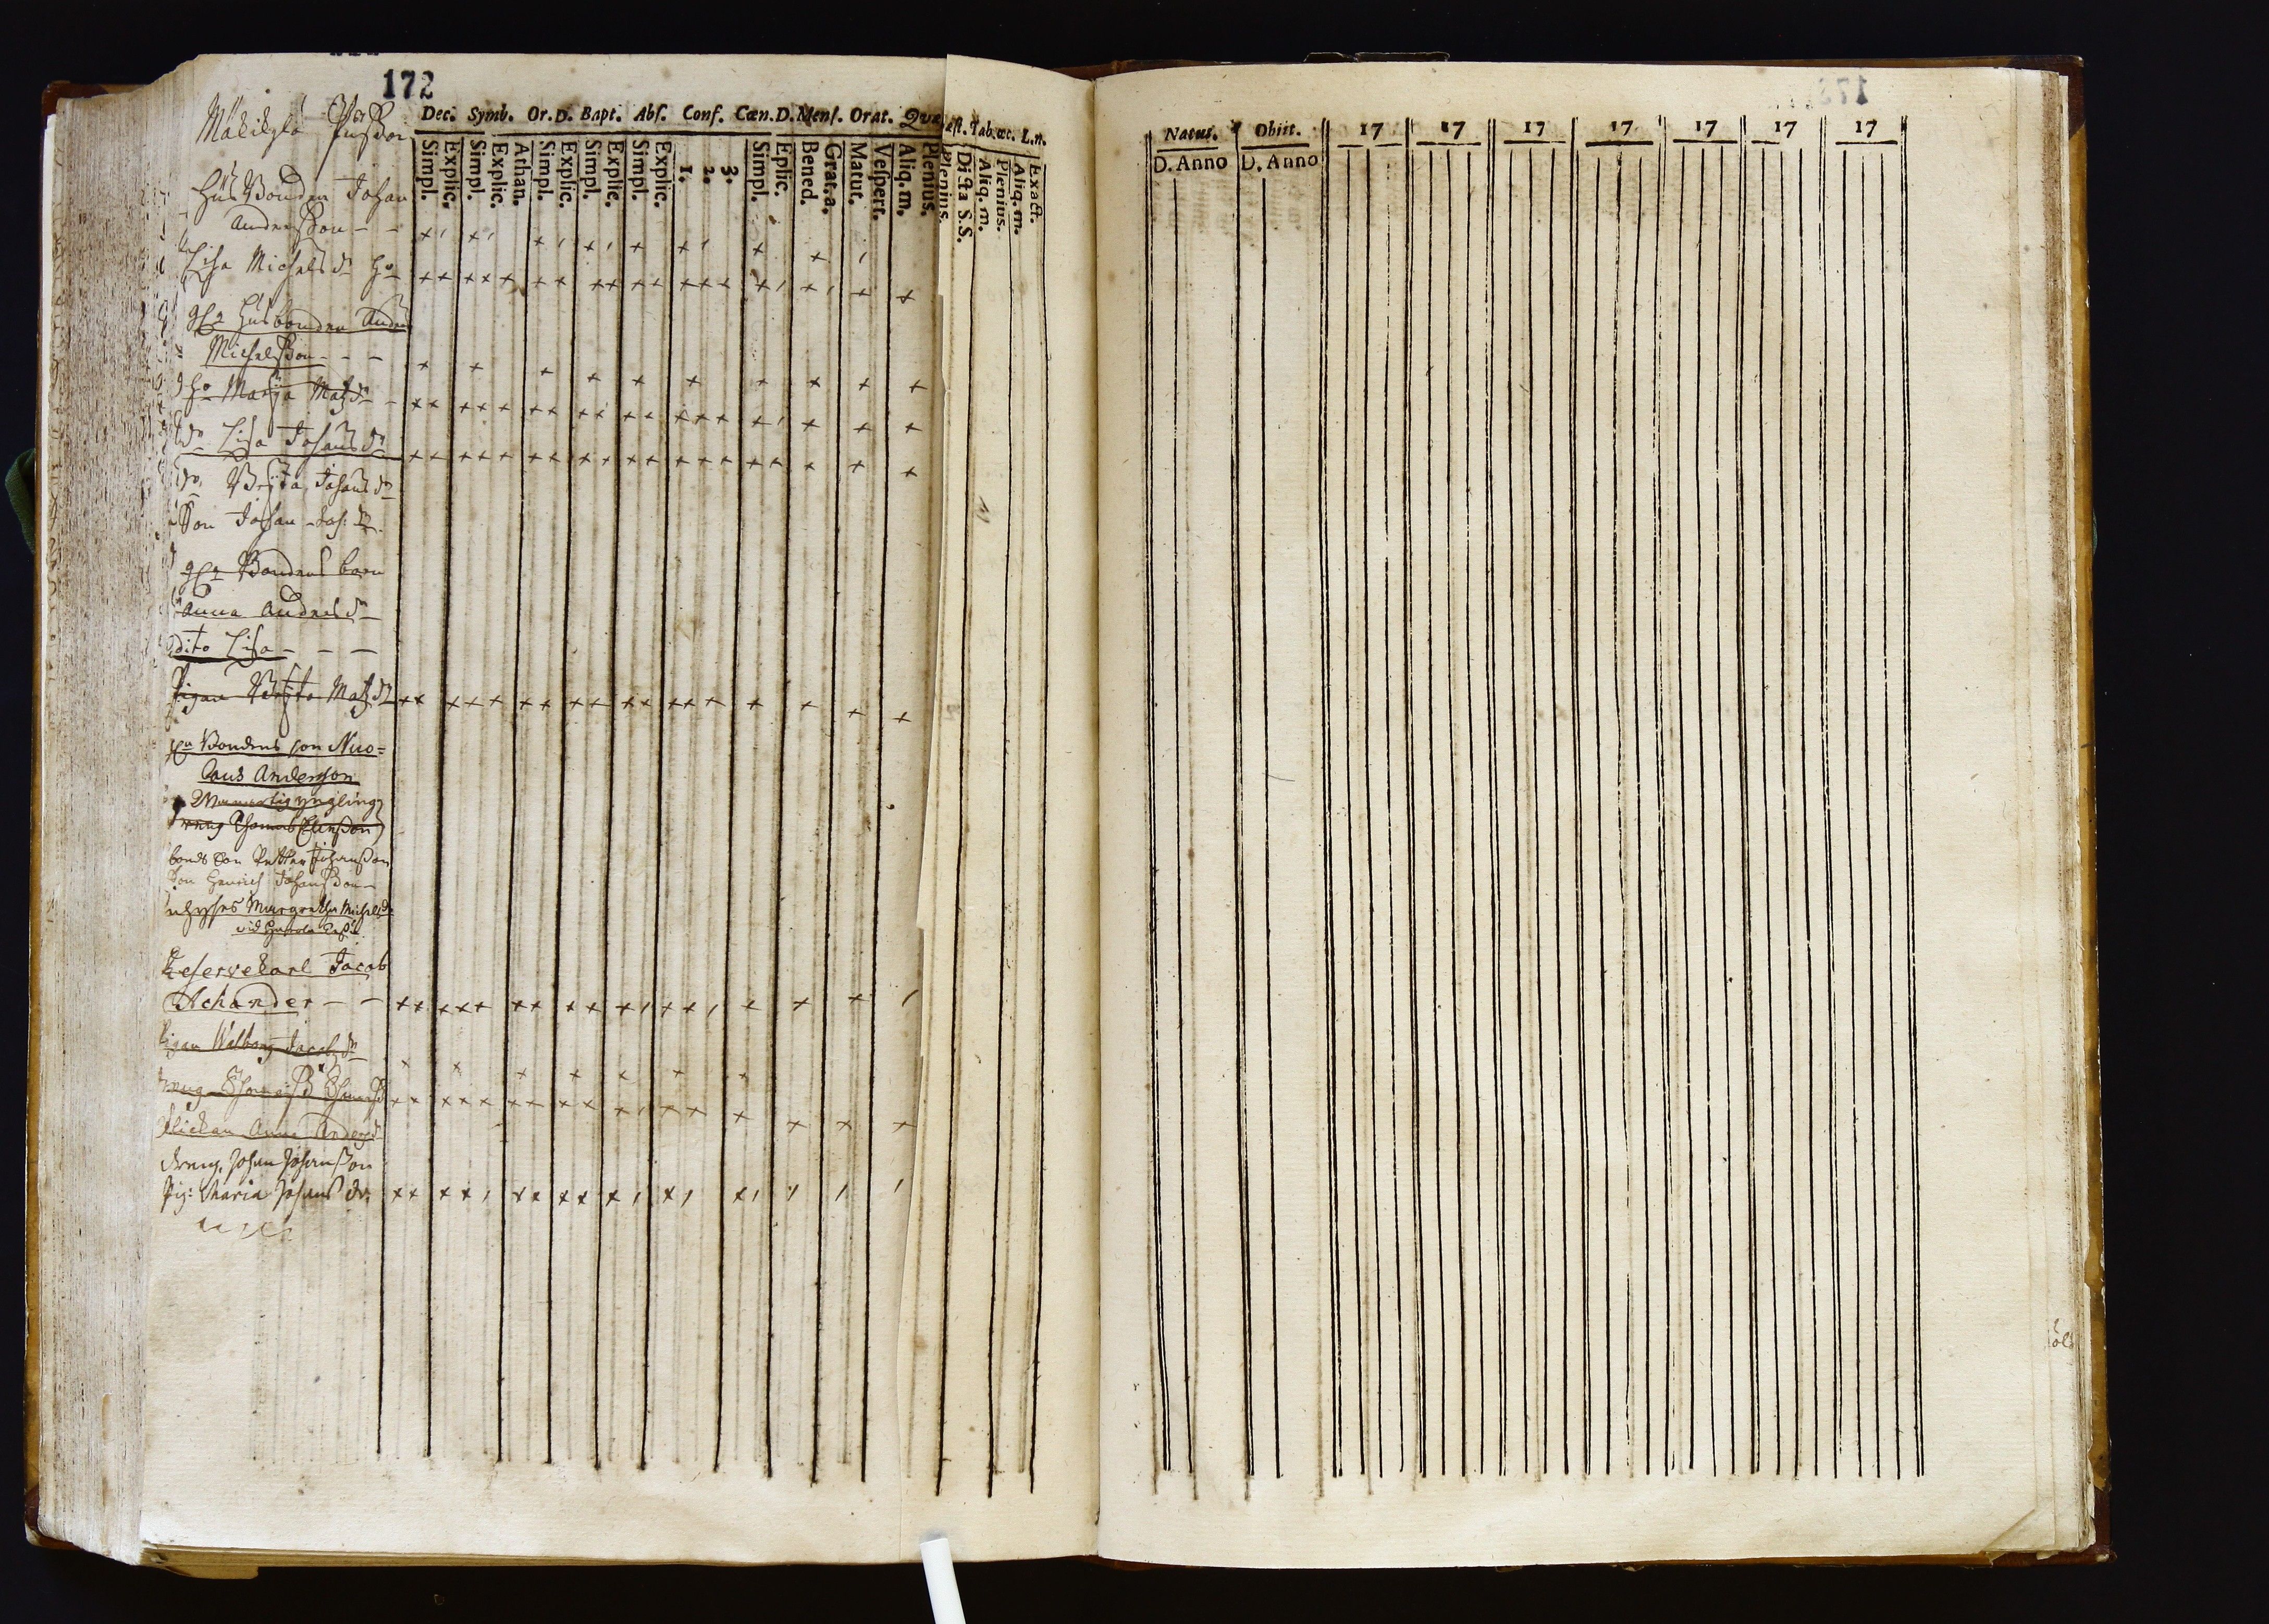 172
Mäkikylä
Dec. Symb. Or. D. Bapt. Abs. Conf. Cœn. D. Mens. Orat. Quæ
Simpl. Explic. Simpl. Explic. Athan. Simpl. Explic. Simpl. Explic. Simpl. Explic. 1. 2. 3. Simpl. Eplic. Bened. Grat. a. Matut. Vespert. Aliq. m. Plenius.
æst. Tab. œc. L. n.
Plenius. Dicta S. S. Aliq. m. Plenius. Aliq. m. Exact.
Hus Bonden Johan
Andersson - -
Lisa Michels dr
Husbonden
Michelsson - - -
Marja Matz dr -
dr Lisa Johans dr
dr Brita Johans dr
Son Johan Joh:
Bondens barn
Anna Anders dr
dito Lisa - - -
Pigan Brita Matz dr
Bondens son Nico=
laus Andersson
yngling
dreng Thomas
bonds Son Petter Johansson
Son Henrich Johansson
Margretha Michelsd.
Reservekarl Jacob
Achander - -
Pigan Walborg Jacobs dr
dreng
Flickan Anna Andersd
dreng, Johan Johansson
Pig: Maria Johans dr.
Natus. Obiit. 17 17 17 17 17 17 17
D. Anno D. Anno